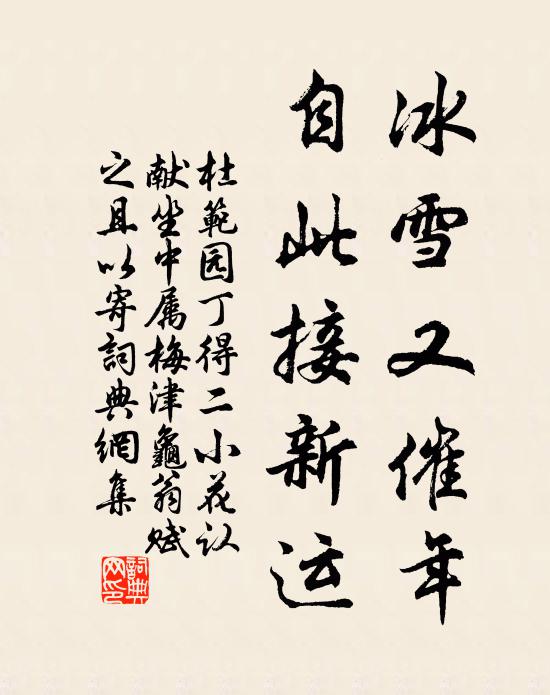 冰雪又催年
自此接新运
杜範园丁得二小花以
献坐中属梅津龜翁赋
之且以寄詞典網集
詞典
网印